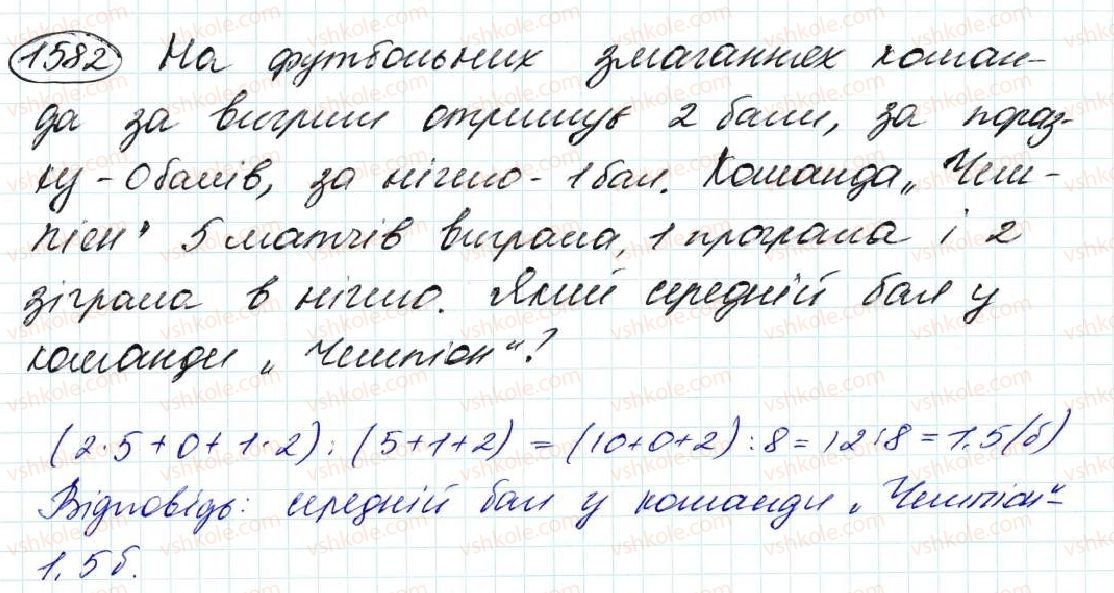 1582 На футбольних змаганнях коман-
да за виграш отримує 2 бали, за пораз-
ку - 0 балів, за нічию - 1 бал. Команда „Чем-
піон" 5 матчів виграла, 1 програла і 2
зіграла в нічию. Який середній бал у
команди „Чемпіон"?
(2·5+0+1·2):(5+1+2) = (10+0+2):8 = 12:8 = 1,5(б)
Відповідь: середній бал у команди „Чемпіон"-
1,5 б.